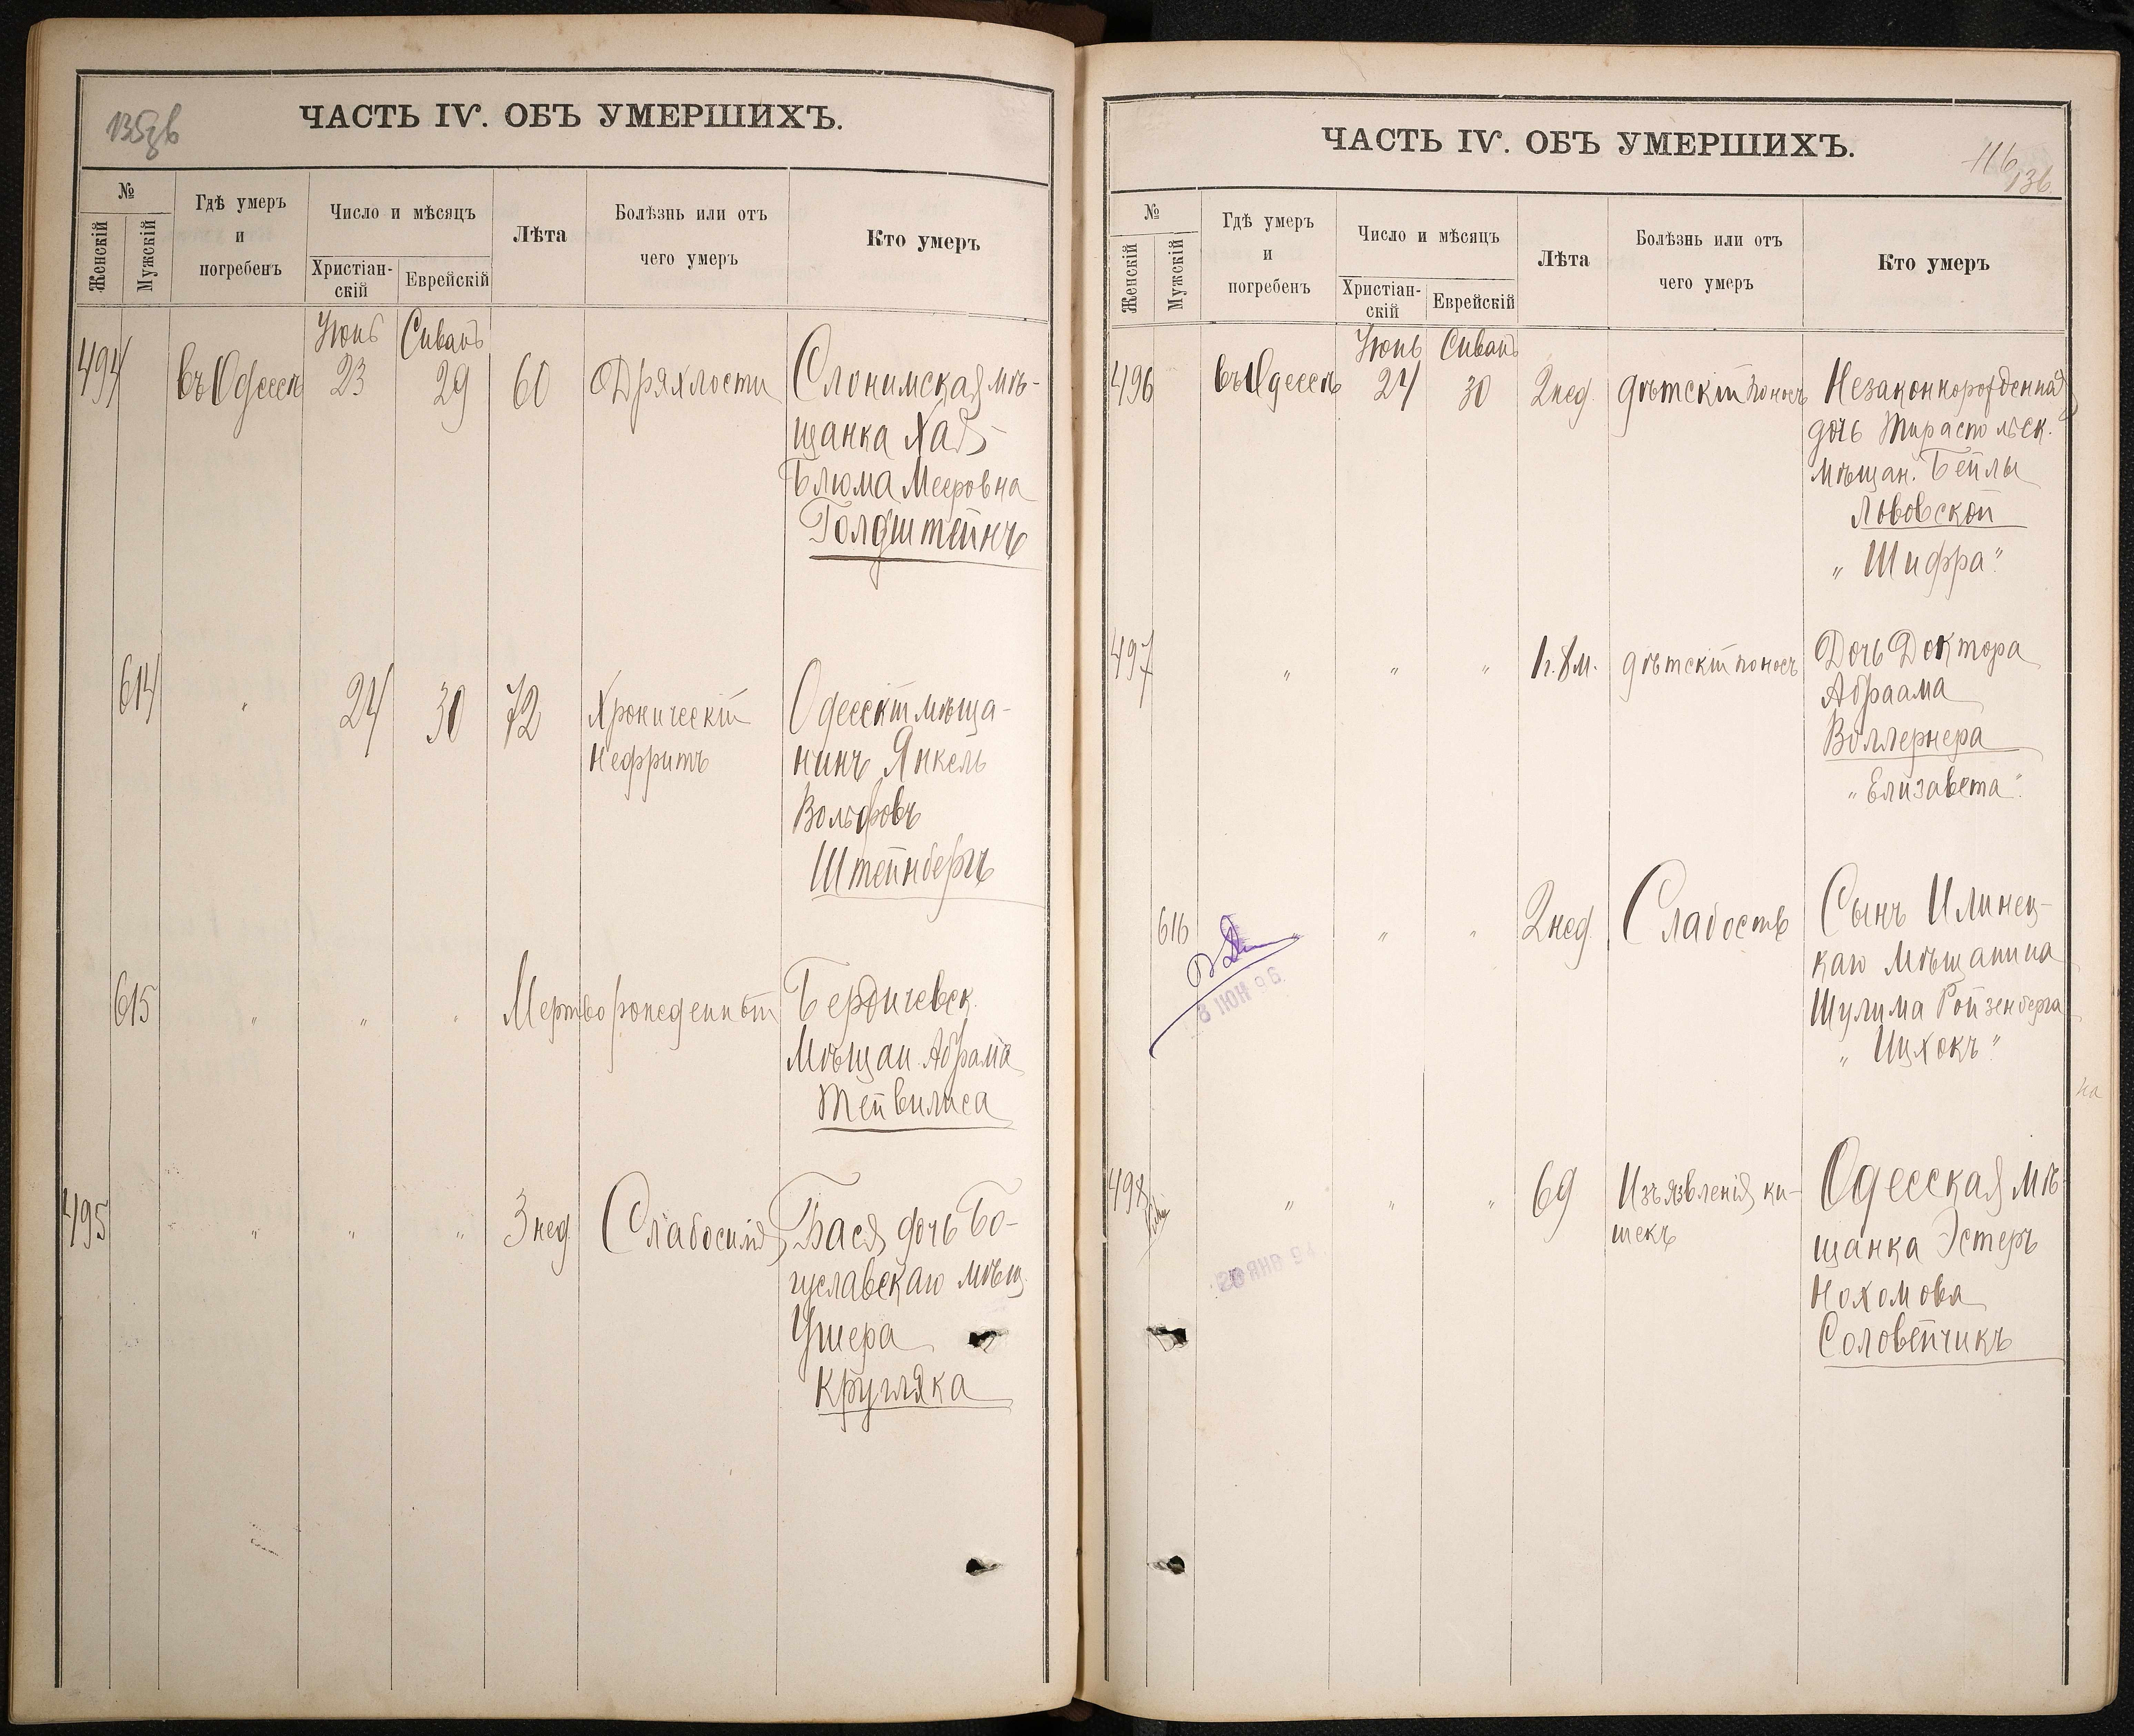 135зв
ЧАСТЬ IV. ОБЪ УМЕРШИХЪ.
№
Женскій
Мужскій
Гдѣ умеръ
и
погребенъ
Число и мѣсяцъ
Христіан-
скій
Еврейскій
Лѣта
Болѣзнь или отъ
чего умеръ
Кто умеръ
Іюнь Сиванъ
494 въ Одессѣ 23 29 60 Дряхлости Слонимская мѣ-
щанка Хая
Блюма Мееровна
Голдштейнъ
614 " 24 30 72 Хроническій Одесскій мѣща-
нефритъ нинъ Янкель
Вольфовъ
Штейнбергъ
615 " " " Мертворожденный Бердичевск.
Мѣщан. Абрама
Тейвилиса
495 " " " 3 нед. Слабосилія Бася дочь Бо-
гуславскаго мѣщ.
Ушера
Кругляка
ЧАСТЬ IV. ОБЪ УМЕРШИХЪ.
116
136.
№
Женскій
Мужскій
Гдѣ умеръ
и
погребенъ
Число и мѣсяцъ
Христіан-
скій
Еврейскій
Лѣта
Болѣзнь или отъ
чего умеръ
Кто умеръ
Іюнь Сиванъ
496 въ Одессѣ 24 30 2 нед. дѣтскій поносъ Незаконнорожденная
дочь Тираспольск.
мѣщан. Бейлы
Львовской
„Шифра"
497 " " " 1 г. 8 м. дѣтскій поносъ Дочь Доктора
Абраама
Воллернера
„Елизавета"
616 " " " 2 нед. Слабость Сынъ Илинец-
каго Мѣщанина
Шулима Ройзенберга
„Ицхокъ"
8 ІЮН 96
на
498 " " " 69 Изъязвленія ки- Одесская мѣ-
шекъ щанка Эстеръ
Нохомова
Соловейчикъ
20 ЯНВ 94